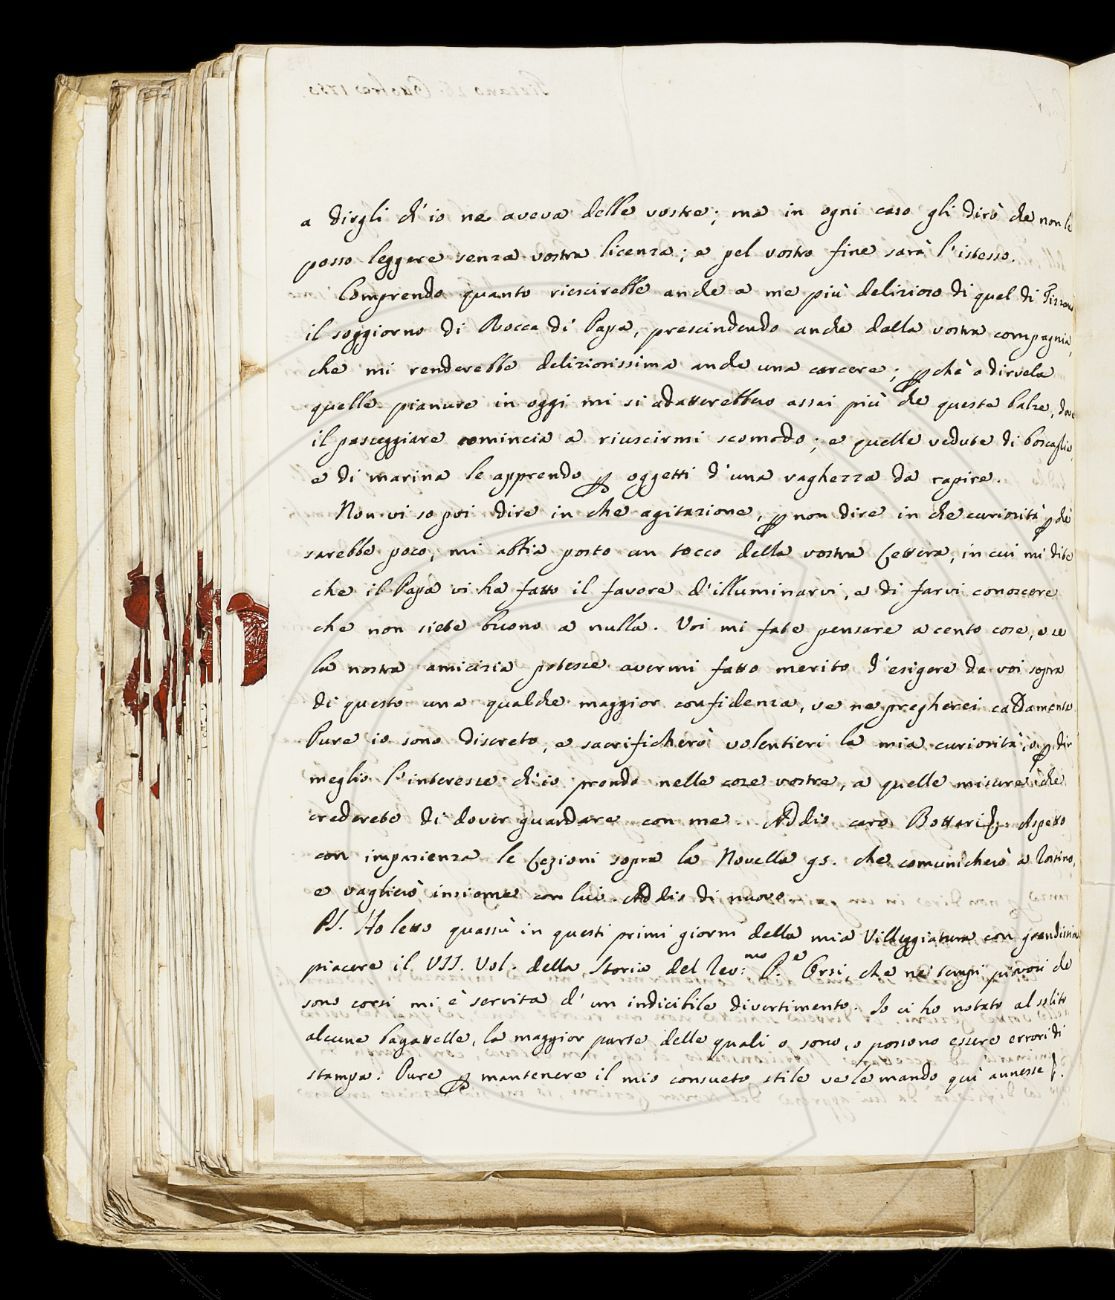 a dirgli ch'io ne aveva delle vostre; ma in ogni caso gli dirò che non le
posso leggere senza vostra licenza; e pel vostro fine sarà l'istesso.
Comprendo quanto riescirebbe anche a me più delizioso di quel di
il soggiorno di Rocca di Papa, prescindendo anche dalla vostra compagnia,
che mi renderebbe deliziosissima anche una carcere; pchè a dirvela
quelle pianure in oggi mi si adatterebbero assai più che queste balze, dove
il passeggiare comincia a riuscirmi scomodo; e quelle vedute di boscaglia,
e di marina le apprendo p oggetti d'una vaghezza da rapire.
Non vi so poi dire in che agitazione, p non dire in che curiosità, pchè
sarebbe poco, mi abbia posto un tocco della vostra Lettera, in cui mi dite
che il Papa vi ha fatto il favore d'illuminarvi, e di farvi conoscere
che non siete buono a nulla. Voi mi fate pensare a cento cose, e se
la nostra amicizia potesse avermi fatto merito d'esigere da voi sopra
di questo una qualche maggior confidenza, ve ne pregherei caldamente
Pure io sono discreto, e sacrificherò volentieri la mia curiosità, o p dir
meglio l'interesse ch'io prendo nelle cose vostre, a quelle misure che
crederete di dover guardare con me. Addio caro Bottari. Aspetto
con impazienza le Lezioni sopra la Novella 95. che comunicherò a
e vaglierò insieme con lui. Addio di nuovo.
PS. Ho letto quassù in questi primi giorni della mia Villeggiatura con grandissimo
piacere il VII. Vol. della Storia del Rev:mo P.e Orsi, che ne' tempi piovosi che
sono corsi mi è servita d'un indicibile divertimento. Io ci ho notato al solito
alcune bagattelle, la maggior parte delle quali o sono, o possono essere errori di
stampa. Pure p mantenere il mio consueto stile ve le mando qui annesse